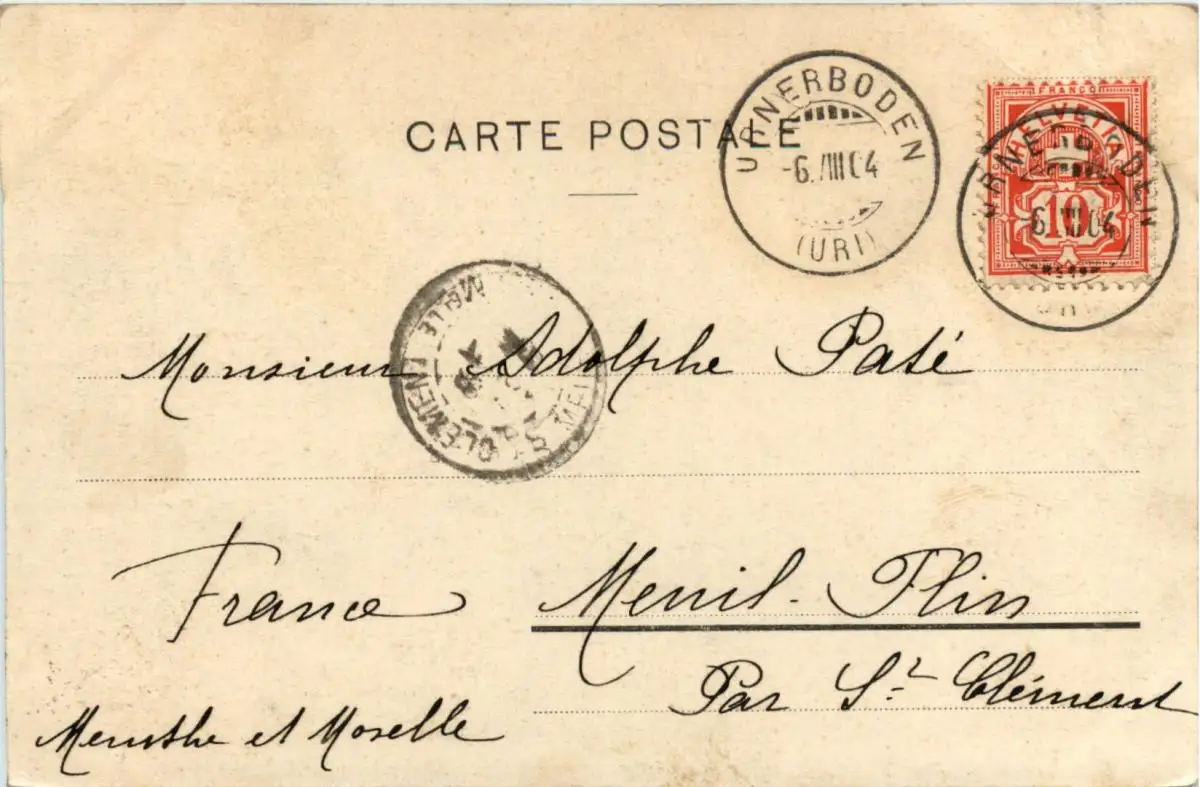 CARTE POSTALE
URNERBODEN
-6.VIII 04
(URI)
FRANCO
HELVETIA
10
URNERBODEN
-6.VIII 04
ST CLEMENT
Monsieur Adolphe Paté
France Menil-Flin
Par St Clément
Meurthe et Moselle